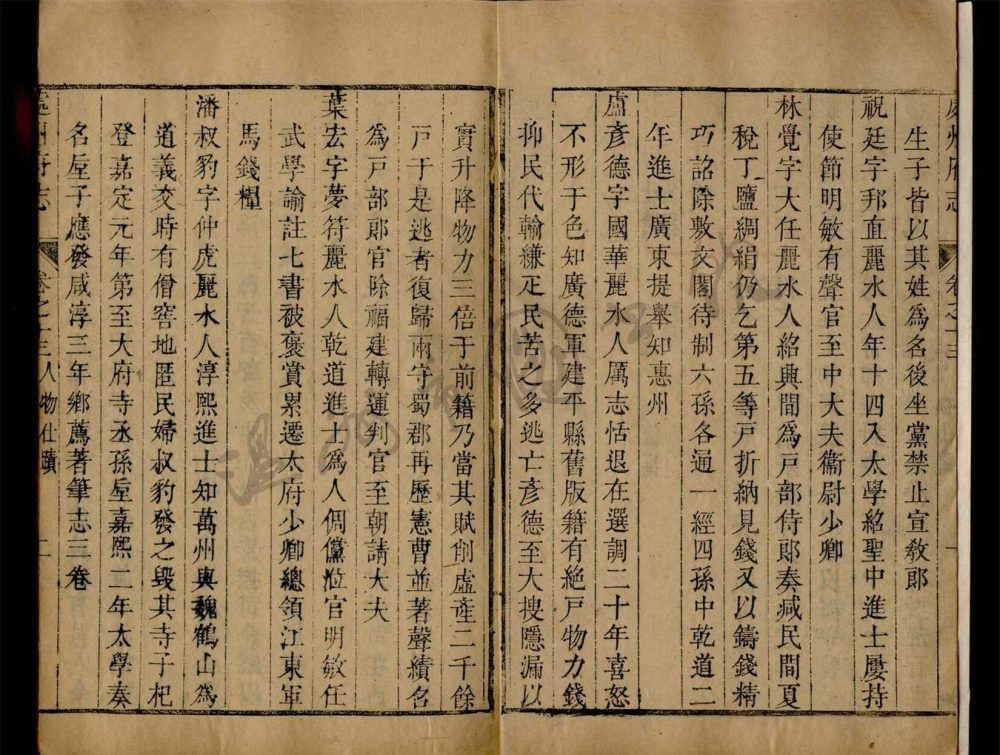 處州府志 卷之十三 一
生子皆以其姓為名後坐黨禁止宣教郎
祝廷字邦直麗水人年十四入太學紹聖中進士屢持
使節明敏有聲官至中大夫衞尉少卿
林覺字大任麗水人紹興間為戶部侍郎奏減民間夏
稅丁鹽綢絹仍乞第五等戶折納見錢又以鑄錢精
巧詔除敷文閣待制六孫各通一經四孫中乾道二
年進士廣東提舉知惠州
盧彥德字國華麗水人厲志恬退在選調二十年喜怒
不形于色知廣德軍建平縣舊版籍有絕戶物力錢
抑民代輸縑疋民苦之多逃亡彥德至大搜隱漏以
實升降物力三倍于前籍乃當其賦創虛產二千餘
戶于是逃者復歸兩守蜀郡再歷憲曹並著聲績名
為戶部郎官除福建轉運判官至朝請大夫
葉宏字夢符麗水人乾道進士為人倜儻涖官明敏任
武學諭註七書被褒賞累遷太府少卿總領江東軍
馬錢糧
潘叔豹字仲虎麗水人淳熙進士知萬州與魏鶴山為
道義交時有僧窖地匿民婦叔豹發之毀其寺子杞
登嘉定元年第至大府寺丞孫垕嘉熙二年太學奏
名垕子應發咸淳三年鄉薦著筆志三卷
處州府志 卷之十三 人物仕蹟 二